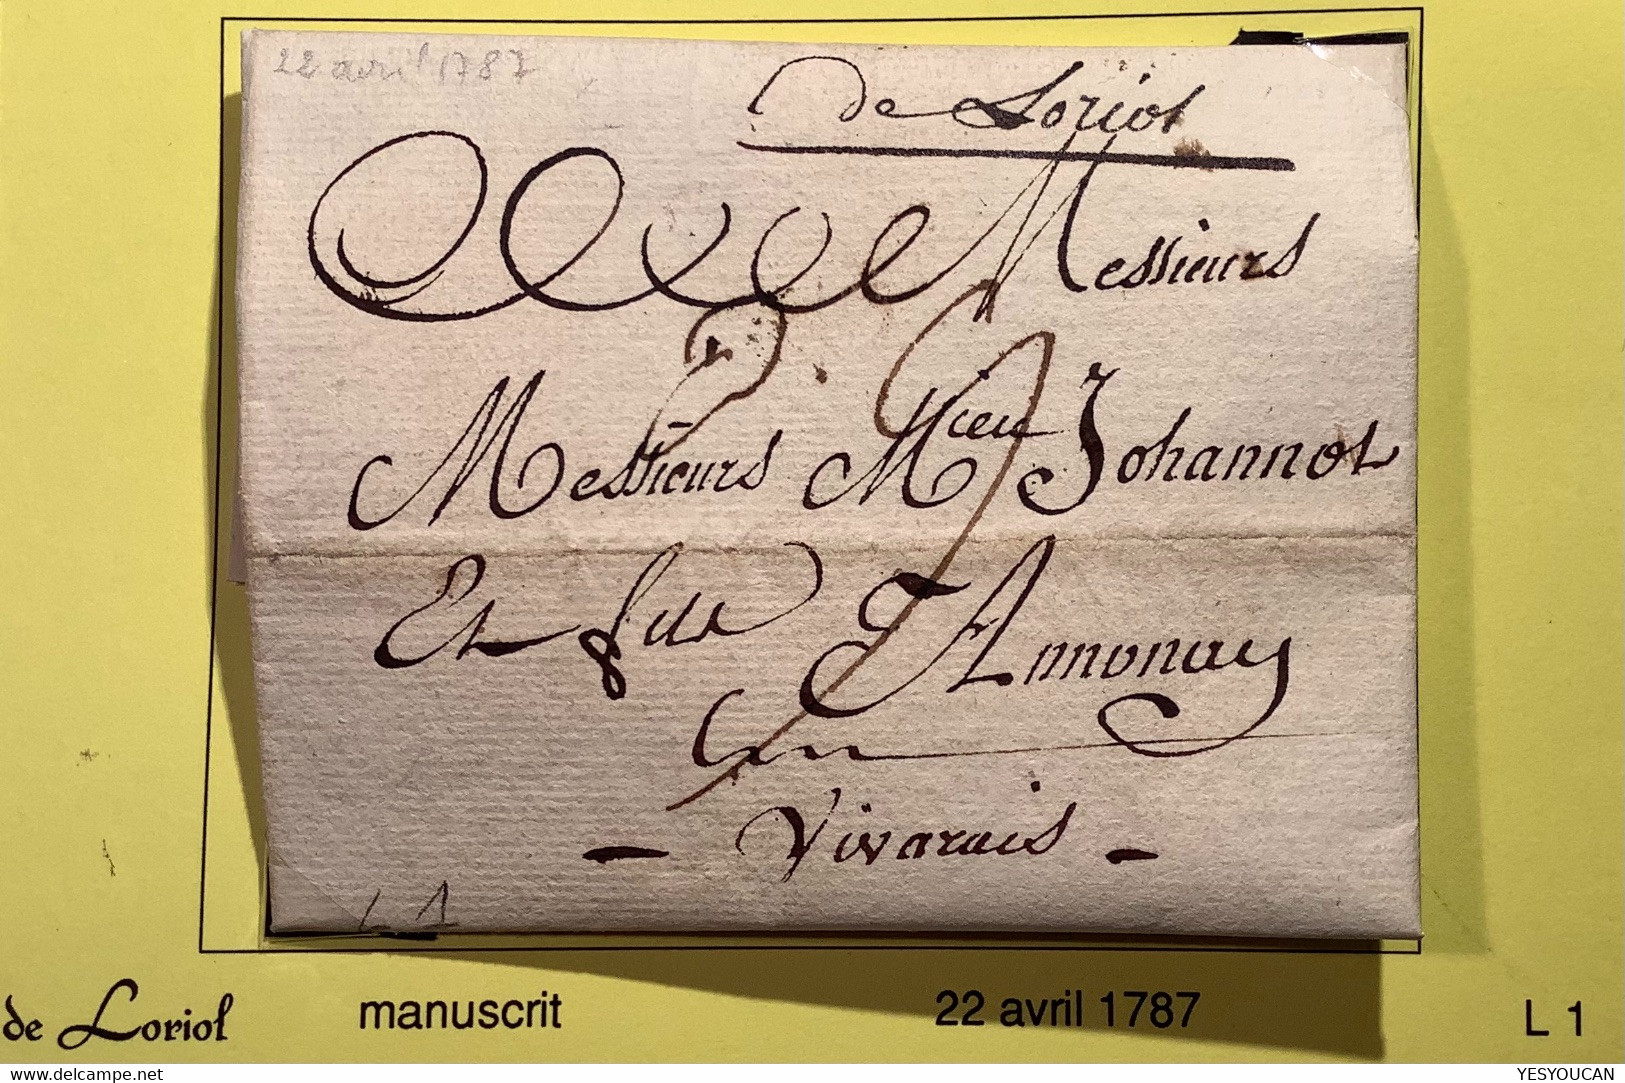 22 avril 1787
de Loriol
Messieurs
Messieurs M.ieu Johannot
Et fils Annonay
en
Vivarais
L 1
de Loriol manuscrit 22 avril 1787 L 1
Load full size (1.30 MB) YESYOUCAN